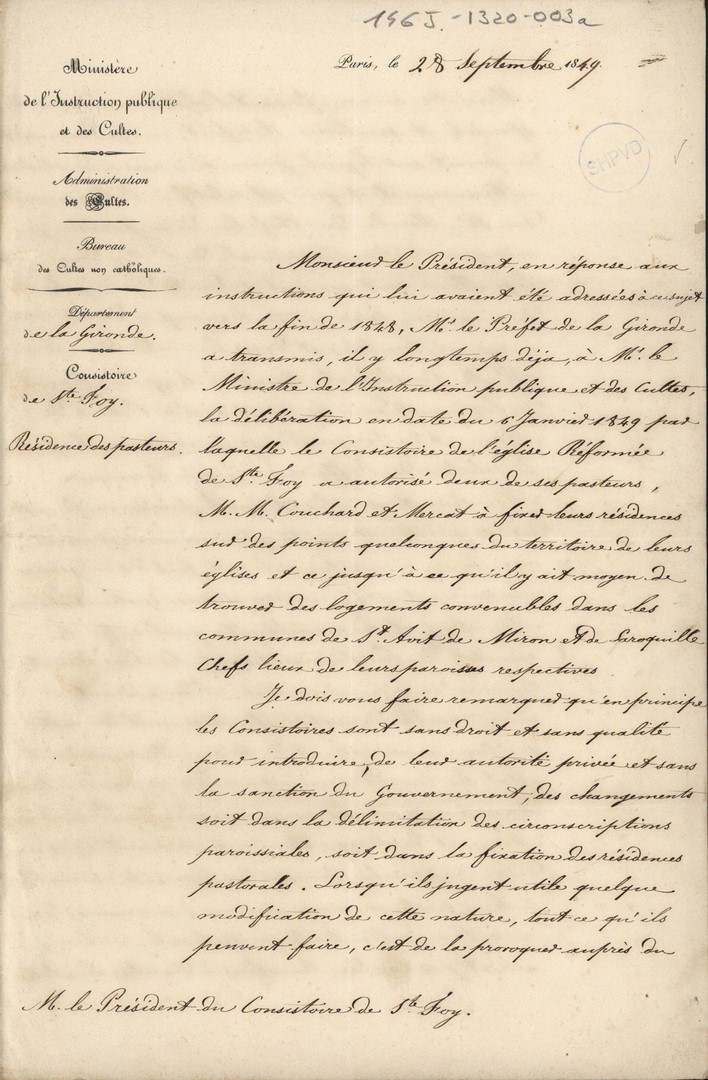 146J-1320-003a
Paris, le 28 Septembre 1849.
Ministère
de l'Instruction publique
et des Cultes.
Administration
des Cultes.
Bureau
des Cultes non catholiques.
Département
de la Gironde.
Consistoire
de Ste Foy.
Résidence des pasteurs.
SHPVD
Monsieur le Président, en réponse aux
instructions qui lui avaient été adressées à ce sujet
vers la fin de 1848, Mr. le Préfet de la Gironde
a transmis, il y longtemps déja, à Mr. le
Ministre de l'Instruction publique et des Cultes,
la délibération en date du 6 Janvier 1849 par
laquelle le Consistoire de l'église Réformée
de Ste Foy a autorisé deux de ses pasteurs,
M. M. Couchard et Mercat à fixer leurs résidences
sur des points quelconques du territoire de leurs
églises et ce jusqu'à ce qu'il y ait moyen de
trouver des logements convenables dans les
communes de St. Avit de Miron et de Laroquille
Chefs lieux de leurs paroisses respectives
Je dois vous faire remarquer qu'en principe
les Consistoires sont sans droit et sans qualité
pour introduire, de leur autorité privée et sans
la sanction du Gouvernement, des changements
soit dans la délimitation des circonscriptions
paroissiales, soit dans la fixation des résidences
pastorales. Lorsqu'ils jugent utile quelque
modification de cette nature, tout ce qu'ils
peuvent faire, c'est de la provoquer auprès du
M. le Président du Consistoire de Ste Foy.